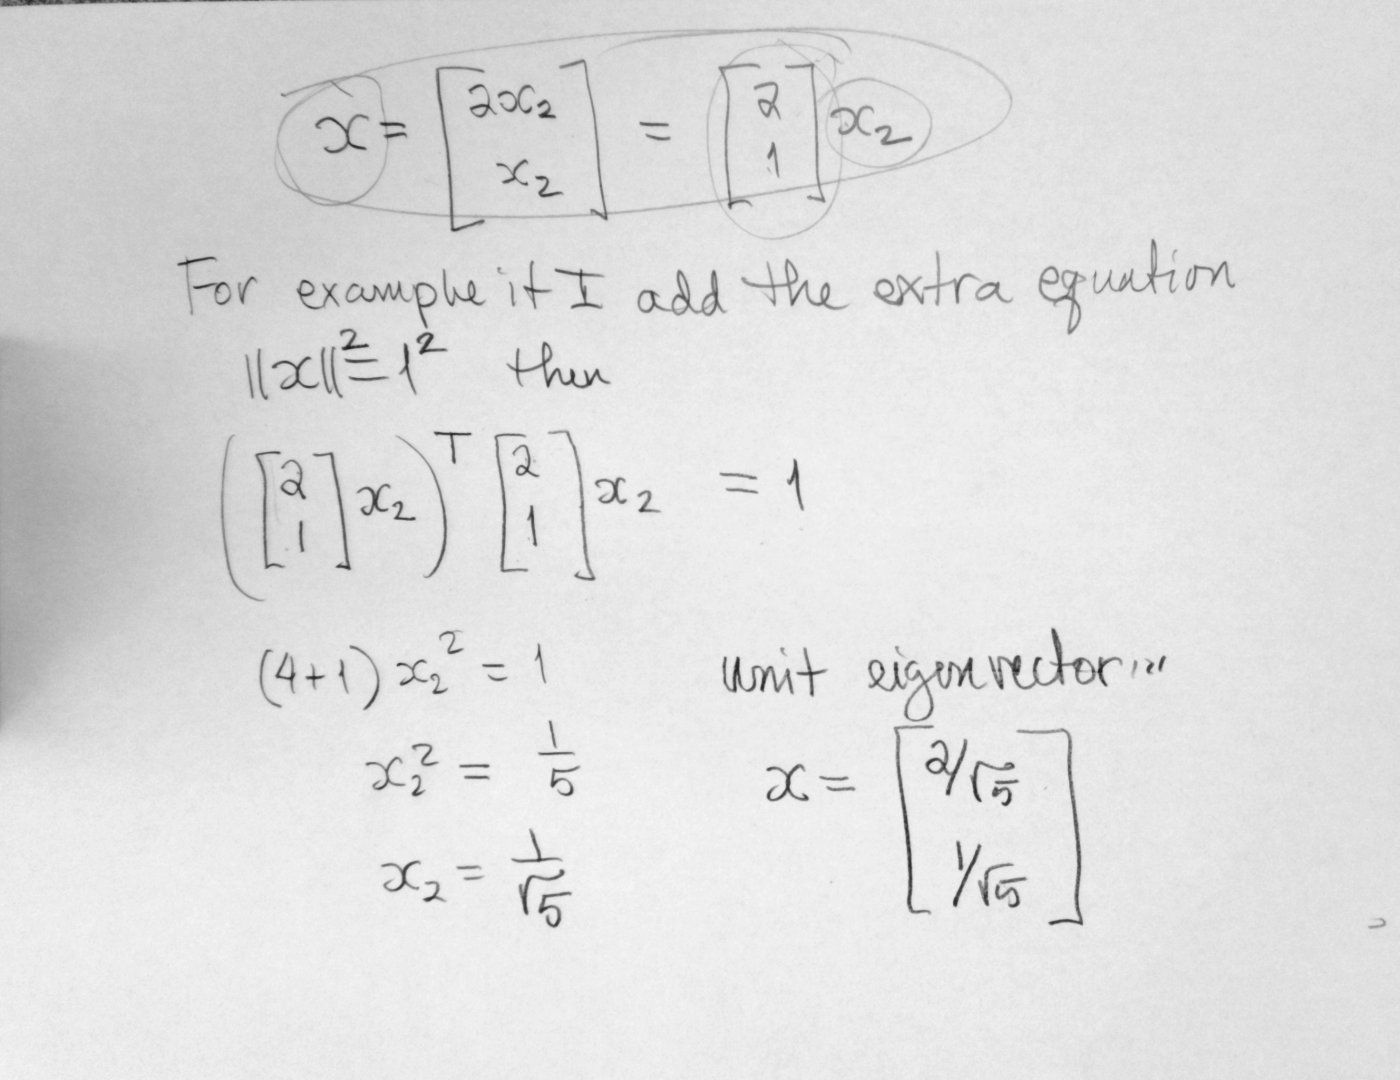 x = [2x₂ x₂] = [2 1] x₂
For example it I add the extra equation
||x||² = 1² then
([2 1] x₂)ᵀ [2 1] x₂ = 1
(4+1) x₂² = 1
x₂² = 1/5
x₂ = 1/√5
unit eigenvector...
x = [2/√5 1/√5]